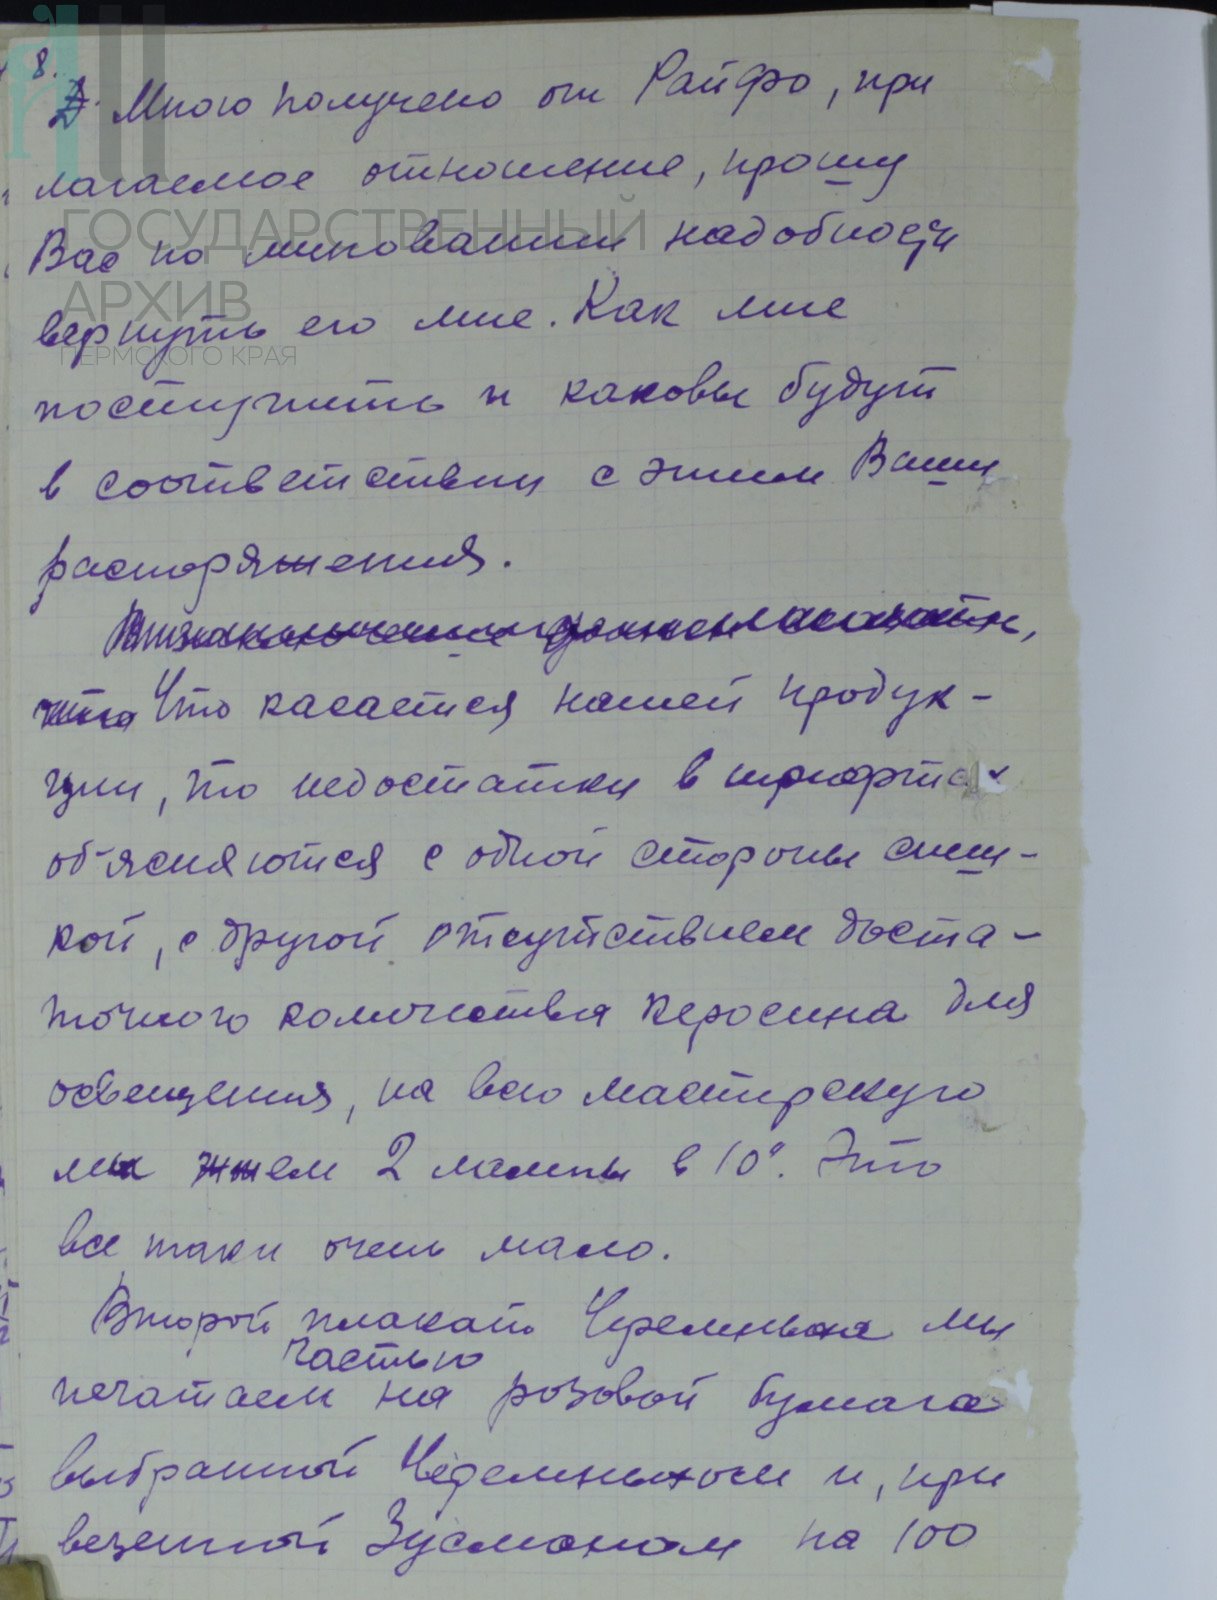 8.
Мною получено от Райфо, при
лагаемое отношение, прошу
Вас по миновании надобности
вернуть его мне. Как мне
поступить и каковы будут
в соответствии с этим Ваши
распоряжения.
что Что касается нашей продук-
ции, то недостатки в шрифтах
об'ясняются с одной стороны спеш-
кой, с другой отсутствием доста-
точного количества керосина для
освещения, на всю мастерскую
мы жжем 2 лампы в 10". Это
все таки очень мало.
Второй плакат Черемныха мы
частью
печатаем на розовой бумаге
выбранной Черемныхом и, при
везенной Зусманом на 100
ГОСУДАРСТВЕННЫЙ
АРХИВ
ПЕРМСКОГО КРАЯ